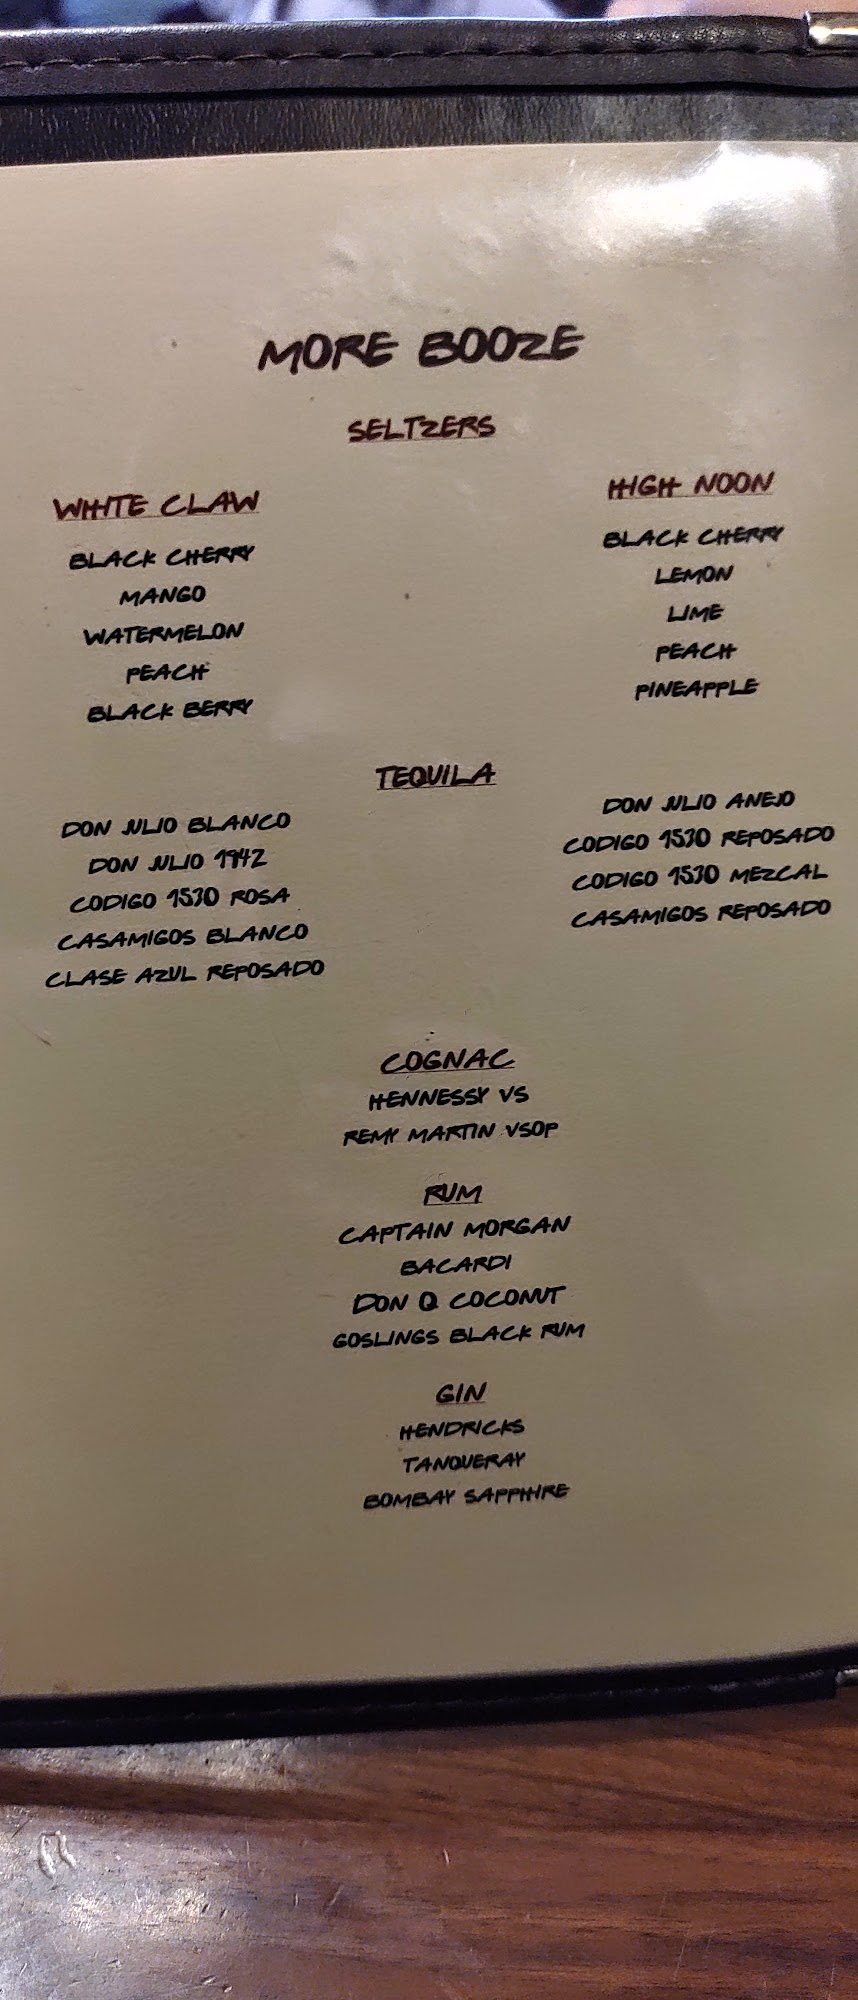 MORE BOOZE
SELTZERS
WHITE CLAW
BLACK CHERRY
MANGO
WATERMELON
PEACH
BLACK BERRY
HIGH NOON
BLACK CHERRY
LEMON
LIME
PEACH
PINEAPPLE
TEQUILA
DON JULIO BLANCO
DON JULIO 1942
CODIGO 1530 ROSA
CASAMIGOS BLANCO
CLASE AZUL REPOSADO
DON JULIO ANEJO
CODIGO 1530 REPOSADO
CODIGO 1530 MEZCAL
CASAMIGOS REPOSADO
COGNAC
HENNESSY VS
REMY MARTIN VSOP
RUM
CAPTAIN MORGAN
BACARDI
DON Q COCONUT
GOSLINGS BLACK RUM
GIN
HENDRICKS
TANQUERAY
BOMBAY SAPPHIRE